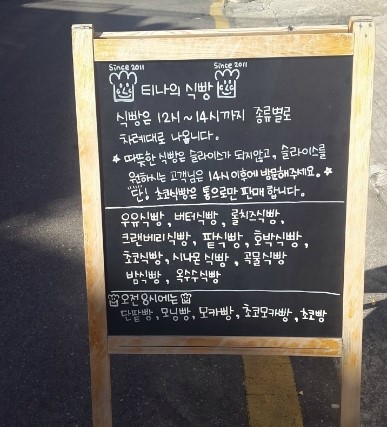 Since 2011 Since 2011
티나의 식빵
식빵은 12시~14시까지 종류별로
차례대로 나옵니다.
★ 따뜻한 식빵은 슬라이스가 되지않고, 슬라이스를
원하시는 고객님은 14시 이후에 방문해주세요. ★
"단! 초코식빵은 통으로만 판매 합니다.
우유식빵, 버터식빵, 롤치즈식빵,
크랜베리식빵, 팥식빵, 호박식빵,
초코식빵, 시나몬 식빵, 곡물식빵
밤식빵, 옥수수식빵
오전 8시에는
단팥빵, 모닝빵, 모카빵, 초코모카빵, 초코빵